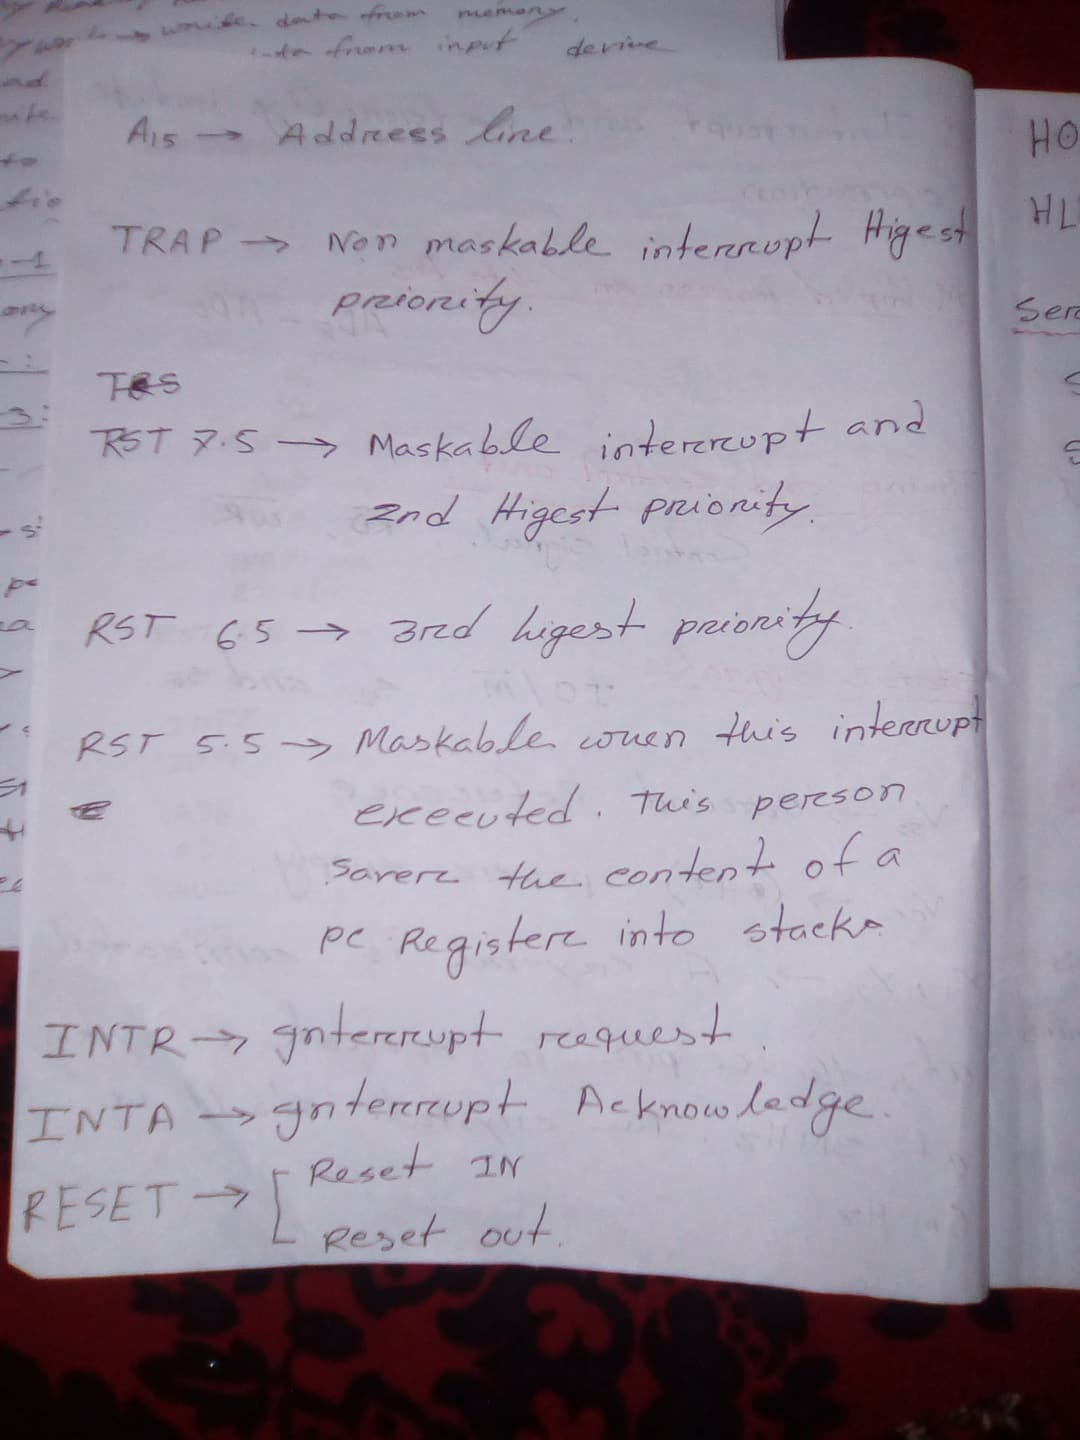 write data from memory.
from input device
A15 → Address line.
TRAP → Non maskable interrupt Higest
priority.
RST 7.5 → Maskable interrupt and
2nd Higest priority.
RST 6.5 → 3rd higest priority.
RST 5.5 → Maskable when this interrupt
executed. This person
saver the content of a
PC Register into stack
INTR → Interrupt request.
INTA → Interrupt Acknowledge.
RESET → [ Reset IN
Reset out.
HO
HL
Ser